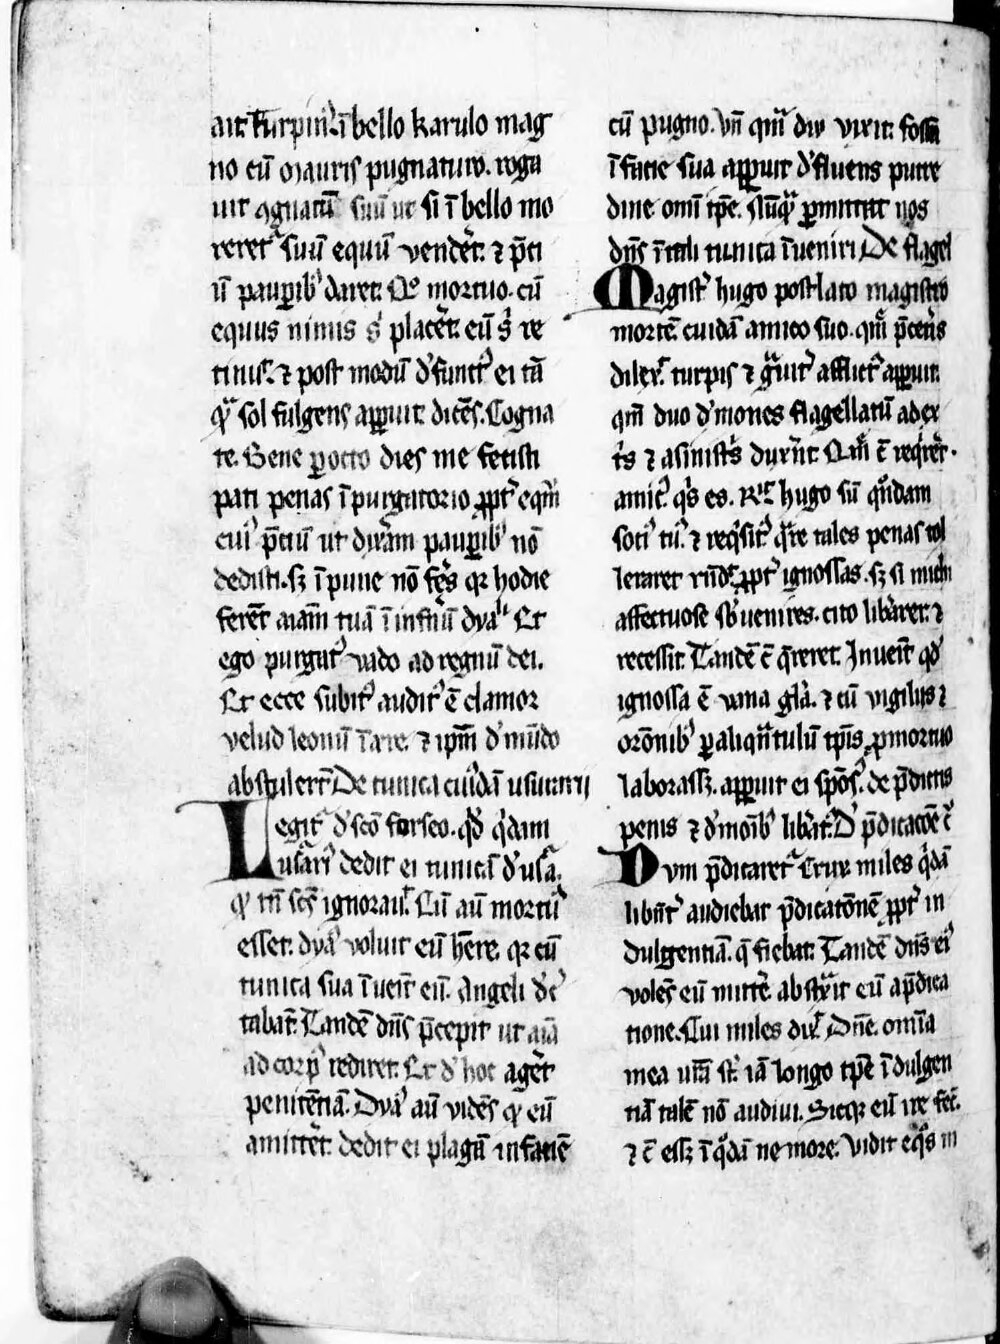 ait Turpin᷒ ī bello Karulo mag
no cū mauris pugnaturo. roga
uit ꝯgnatū suū ut si ī bello mo
reret᷒ suū equū venderet. ⁊ p̄ti
ū paupib᷒ daret. Qo mortuo. cū
equus nimis ſ᷒ placēt. eū ſ᷒ re
tinuit. ⁊ post modū d̓funct᷒ ei tā
q̄ sol fulgens apparuit dicēs. Cogna
te. Bene p octo dies me fecisti
pati penas ī purgatorio ꝓpt᷒ equū
cui᷒ p̄ciū ut dixeram paupib᷒ nō
dedisti. sꝫ ī pune nō feres qꝛ hodie
ferēt aīam tuā ī infernū dyaƀ. Et
ego purgat᷒ vado ad regnū dei.
Et ecce subit᷒ audit᷒ ē clamor
velud leonū ī aere. ⁊ ipm̄ d̓ mūdo
abstulerūt. De tunica cuiusdā usurarij
Legit᷒ d̓ scō forseo. qd̄ q̓dam
usurari᷒ dedit ei tunicā d̓ usura.
qd̄ tn̄ scs̄ ignorauit. Cū aū mortu᷒
esset. dyaƀ voluit eū hēre. qꝛ cū
tunica sua ī uenit eū. Angeli d̓cer
tabāt. Tandē dn̄s p̄cepit ut aīa
ad corp᷒ rediret. Et d̓ hoc ageret
penitētiā. Dyaƀ aū vidēs qd̄ eū
amitteret. dedit ei plagā in faciē
cū pugno. Vn̄ qm̄ diu vixit. fossa
ī facie sua apparuit d̓fluens putre
dine omī tp̄e. Nūq̄ permittat nos
dn̄s ī tali tunica īueniri De flagel
Magist᷒ hugo post lato magistro
mortē cuidā amico suo. quē p̄ceteris
dilex᷒. turpis ⁊ grauit᷒ afflict᷒ apparuit.
quē duo d̓mones flagellatū a dex
tris ⁊ a sinistris duxerūt. Quē ē req̓reret.
amic᷒ q̓s es. Rn̄t hugo sū quōdam
soci᷒ tu᷒. ⁊ req̓sit᷒ q̄re tales penas tol
leraret rn̄dit ꝓpt᷒ ignossas. sꝫ si michi
affectuose sƀuenires. cito liberaret. ⁊
recessit. Tandē ē q̄reret. Inuenit qd̄
ignossa ē vana gl̄a. ⁊ cū vigiliis ⁊
orōnib᷒ p aliqn̄tulū tp̄is ꝓ mortuo
laborassꝫ. apparuit ei spōs᷒. de p̄dictis
penis ⁊ d̓monib᷒ liberat᷒. D̓ p̄dicacōe c᷒
Dum p̄dicaret᷒ Crux miles q̓dā
libent᷒ audiebat p̄dicatōnē ꝓpt᷒ in
dulgentiā. q̄ fiebat. Tandē dn̄s ei᷒
volēs eū mittē abstraxit eū a p̄dica
tione. Cui miles dixit Dn̄e. omīa
mea uR̄a st̄. iā longo tp̄e ī dulgen
tiā talē nō audiui. Sicqꝫ eū ire fecit.
⁊ ē essꝫ ī quōdā nemore. Vidit eq̓s in